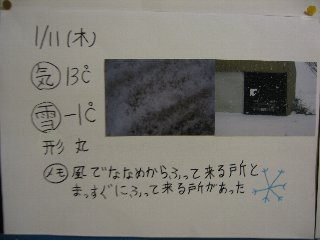 1/11(木)
気 13℃
雪 -1℃
形 丸
メモ 風でななめからふって来る所と
まっすぐにふって来る所があった